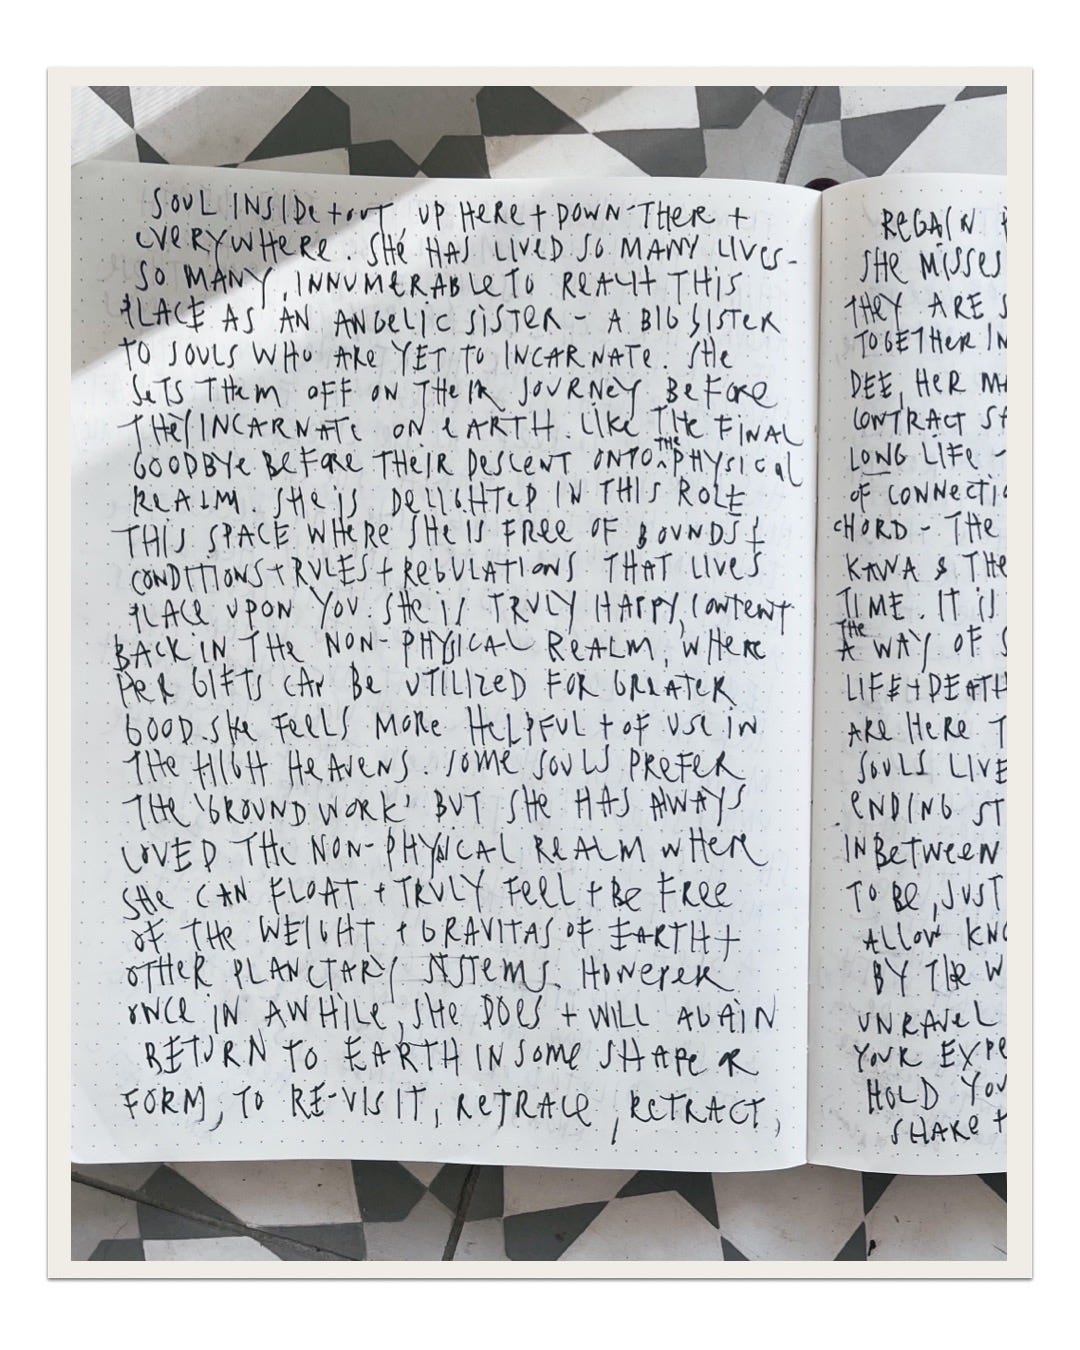 SOUL INSIDE + OUT, UP HERE + DOWN THERE +
EVERYWHERE. SHE HAS LIVED SO MANY LIVES -
SO MANY, INNUMERABLE TO REACH THIS
PLACE AS AN ANGELIC SISTER - A BIG SISTER
TO SOULS WHO ARE YET TO INCARNATE. SHE
SETS THEM OFF ON THEIR JOURNEY BEFORE
THEY INCARNATE ON EARTH. LIKE THE FINAL
GOODBYE BEFORE THEIR DESCENT ONTO THE PHYSICAL
REALM. SHE IS DELIGHTED IN THIS ROLE
THIS SPACE WHERE SHE IS FREE OF BOUNDS +
CONDITIONS + RULES + REGULATIONS THAT LIVES
PLACE UPON YOU. SHE IS TRULY HAPPY, CONTENT
BACK IN THE NON-PHYSICAL REALM, WHERE
HER GIFTS CAN BE UTILIZED FOR GREATER
GOOD. SHE FEELS MORE HELPFUL + OF USE IN
THE HIGH HEAVENS. SOME SOULS PREFER
THE 'GROUND WORK' BUT SHE HAS AWAYS
LOVED THE NON-PHYSICAL REALM WHERE
SHE CAN FLOAT + TRULY FEEL + BE FREE
OF THE WEIGHT + GRAVITAS OF EARTH +
OTHER PLANETARY SYSTEMS. HOWEVER
ONCE IN AWHILE, SHE DOES + WILL AGAIN
RETURN TO EARTH IN SOME SHAPE OR
FORM, TO RE-VISIT, RETRACE, RETRACT,
REGAIN
SHE MISSES
THEY ARE
TOGETHER IN
DEE, HER
CONTRACT
LONG LIFE -
OF
CHORD - THE
KANA & THE
TIME. IT IS
THE
A WAY OF
LIFE + DEATH
ARE HERE
SOULS LIVE
ENDING
IN BETWEEN
TO BE, JUST
ALLOW
BY THE
UNRAVEL
YOUR
HOLD
SHAKE +